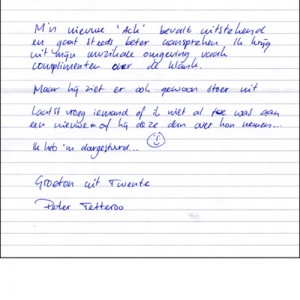 M'n nieuwe 'Ack' bevalt uitstekend
en gaat steeds beter aanspreken. Ik krijg
uit mijn muzikale omgeving vaak
complimenten over de klank.
Maar hij ziet er ook gewoon stoer uit
Laatst vroeg iemand of ik niet al toe was aan
een nieuwe = of hij deze dan over kon nemen...
Ik heb 'm doorgestuurd...
Groeten uit Twente
Peter Tetteroo